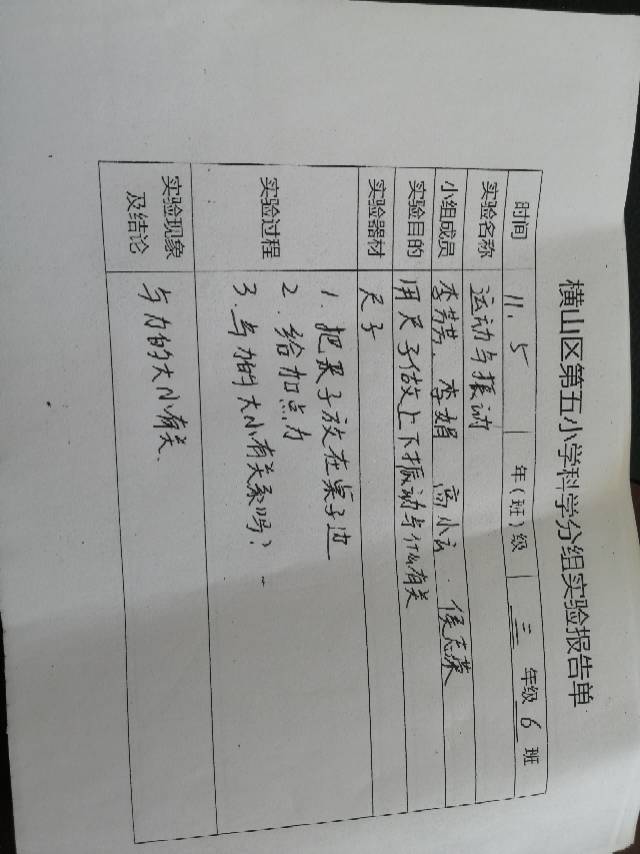 横山区第五小学科学分组实验报告单
时间 11.5 年(班)级 三 年级 6 班
实验名称 运动与振动
小组成员 李芳芳、李娟 高小云.侯志荣
实验目的 用尺子做上下振动与什么有关
实验器材 尺子
实验过程 1.把尺子放在桌子边
2.给加点力
3.与力的大小有关系吗?
实验现象
及结论 与力的大小有关.